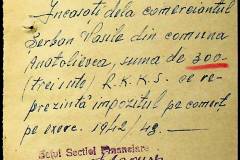 Încasați dela comerciantul
Șerban Vasile din comuna
Anatolievca, suma de 300
(trei sute) R.K.K.S. ce re-
prezintă impozitul pe comerț
pe exerc. 1942/43. —
Șeful Secției Financiare